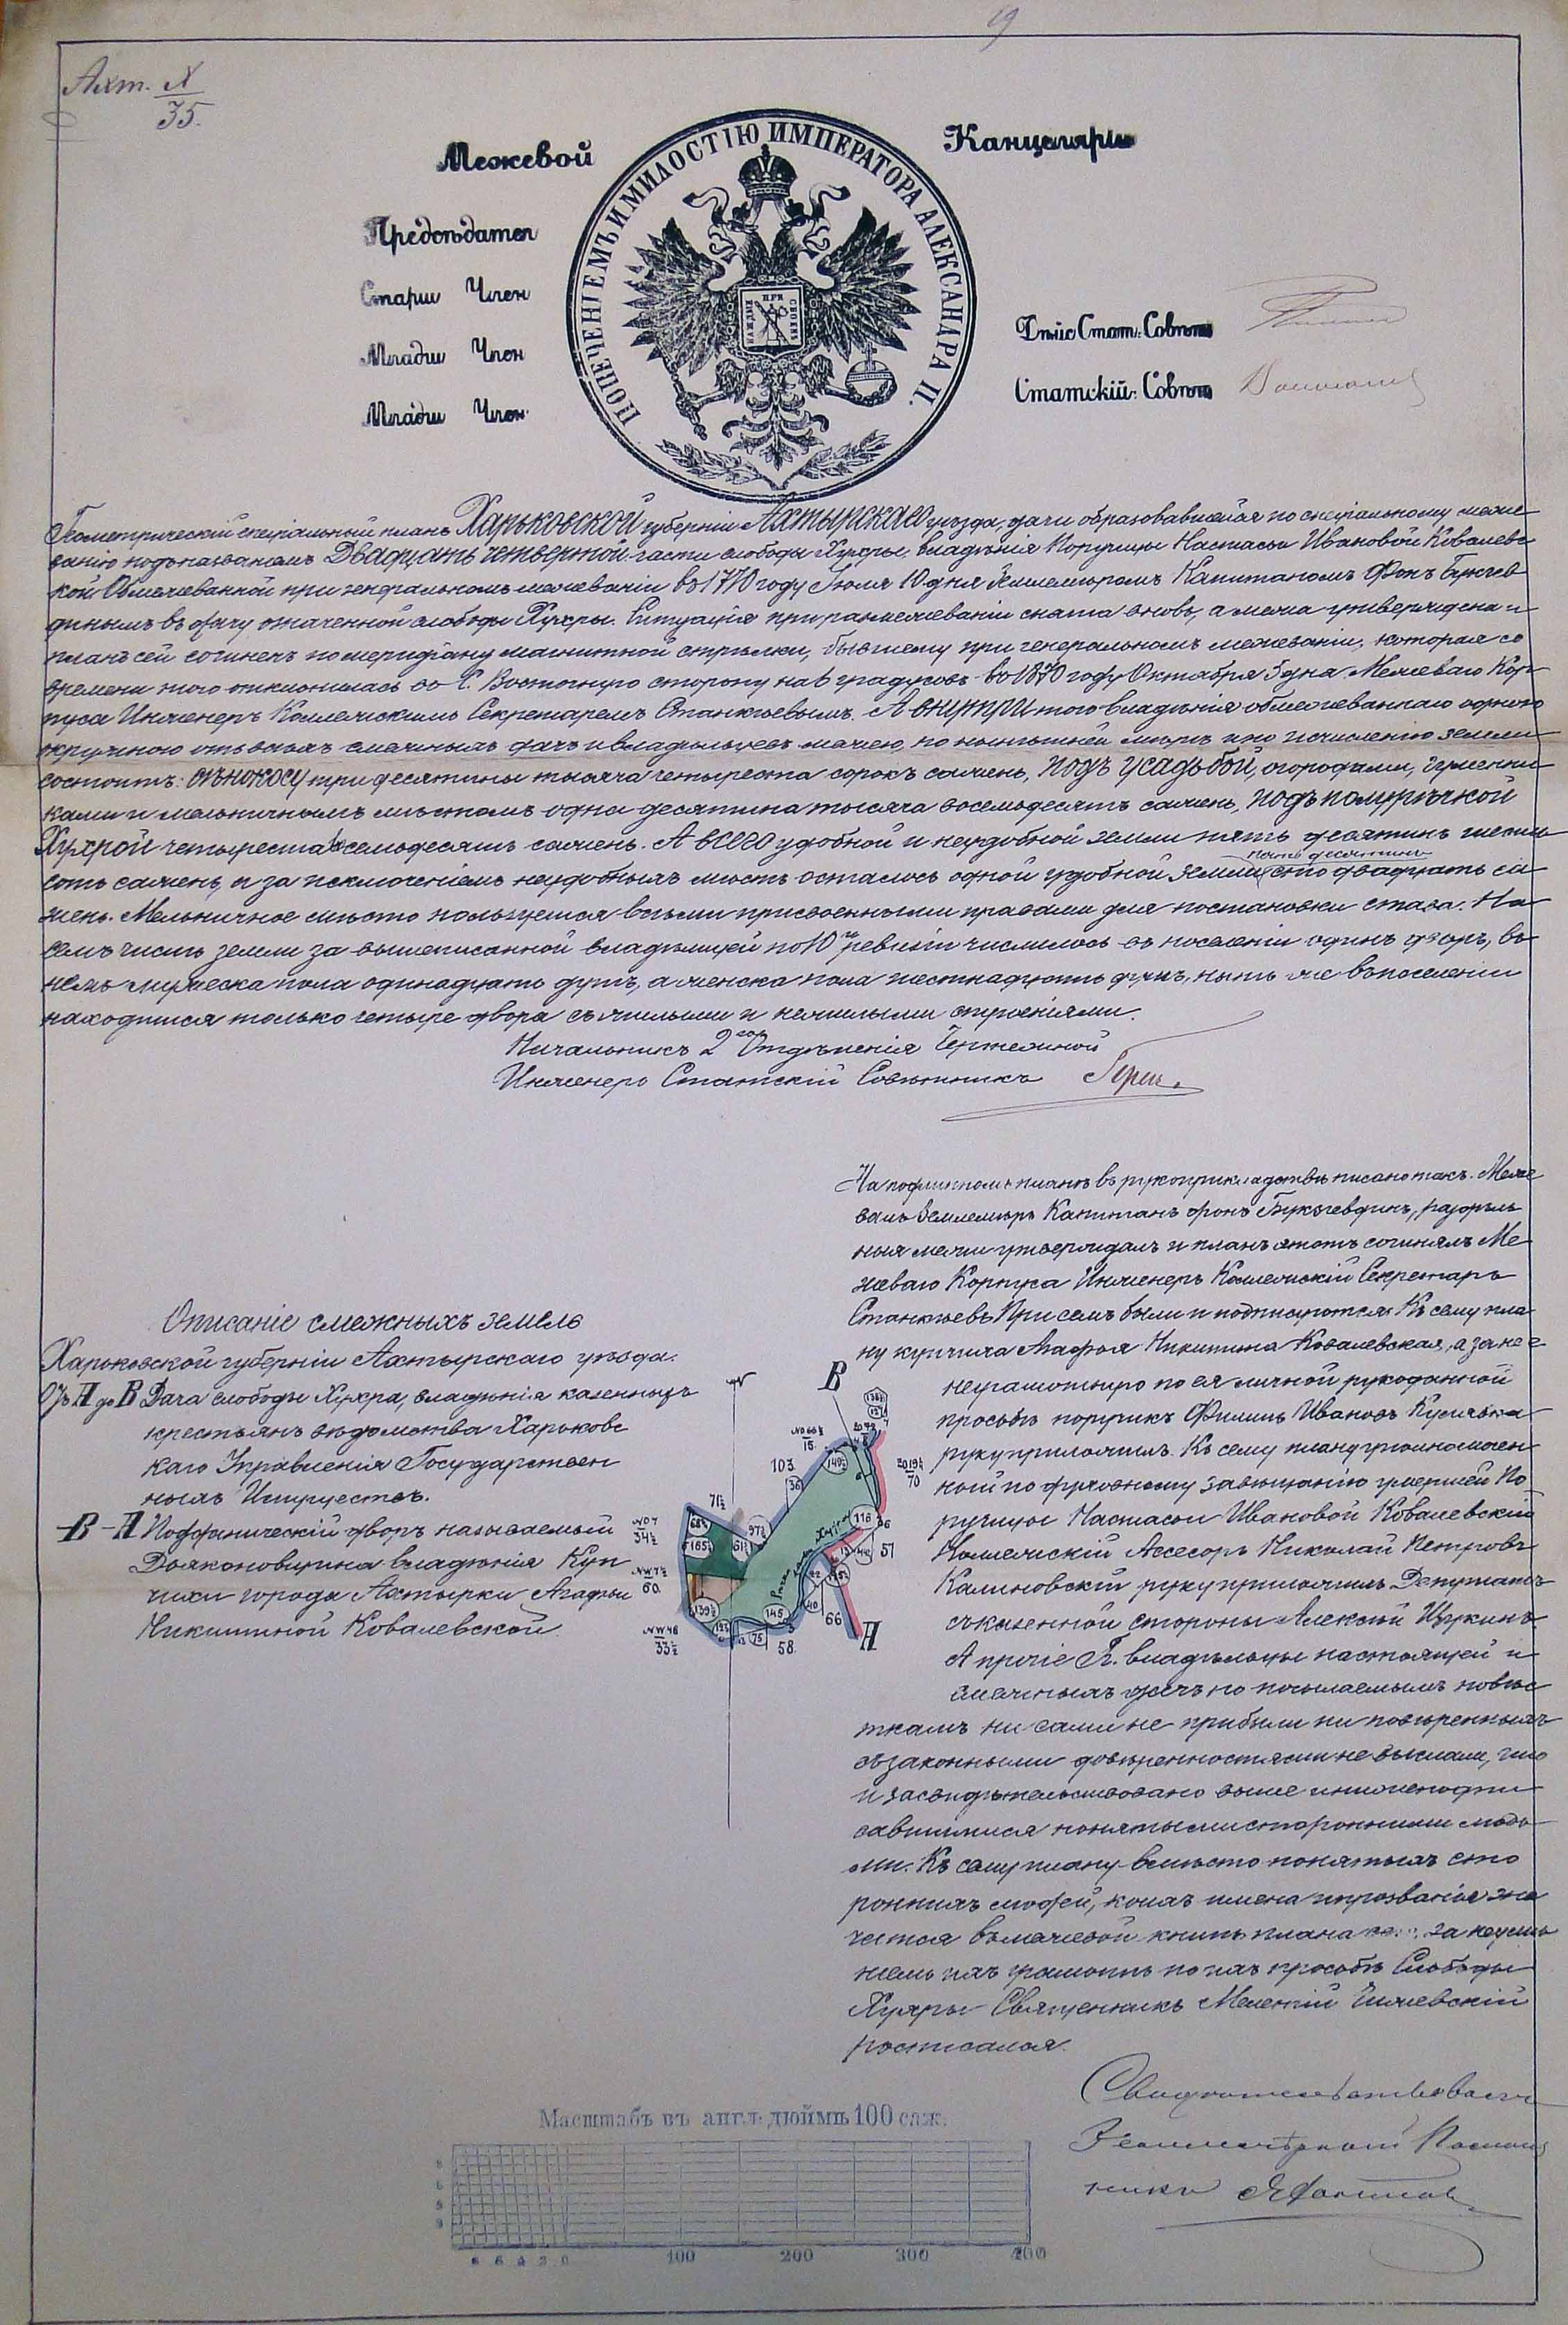 19
Ахт. N
35.
Межевой Канцеляріи
ПОПЕЧЕНІЕМЪ И МИЛОСТІЮ ИМПЕРАТОРА АЛЕКСАНДРА II.
Предсѣдател
Старш Член
Младш Член
Младш Член
Дѣйс Стат: Совѣт
Статскій: Совѣт
Геометрическій спеціальный планъ Харьковской губерніи Ахтырскаго уѣзда, дачи образовавшейся по спеціальному меже
ванію подъ названіемъ Двадцать четвертой части слободы Хухры, владѣнія Поручицы Настасьи Ивановой Ковалевс
кой Обмежеванной при генеральномъ межеваніи въ 1770 году Іюля 10 дня Землемѣромъ Капитаномъ Фонъ
въ дачу означенной слободы Хухры. Ситуація при размежеваніи снята вновь, а межа утверждена и
планъ сей сочиненъ по меридіану магнитной стрѣлки, бывшему при генеральномъ межеваніи, которая со
времени того отклонилась въ С. Восточную сторону на 6 градусовъ въ 1870 году Октября 5 дня Межеваго Кор
пуса Инженеръ Коллежскимъ Секретаремъ Станкѣевымъ. А внутри того владѣнія обмежеваннаго одною
окружною отъ всѣхъ смежныхъ дачъ и владѣльцевъ межею, по нынѣшней мѣрѣ и по исчисленію земли
состоитъ: сѣнокосу три десятины тысяча четыреста сорокъ сажень, подъ усадьбой, огородами, гуменни
ками и мельничнымъ мѣстомъ одна десятина тысяча восемьдесятъ сажень, подъ полурѣчкой
Хухрой четыреста восемьдесятъ сажень. А всего удобной и неудобной земли пять десятинъ шесть
сотъ сажень, а за исключеніемъ неудобныхъ мѣстъ осталось одной удобной земли пять десятинъ сто двадцать са
жень. Мельничное мѣсто пользуется всѣми присвоенными правами для постановки става. На
семъ числѣ земли за вышеписанной владѣлицей по 10й ревизіи числилось въ поселеніи одинъ дворъ, въ
немъ мужеска пола одинадцать душъ, а женска пола шестнадцать душъ, нынѣ же въ поселеніи
находится только четыре двора съ жилыми и нежилыми строеніями.
Начальникъ 2го Отдѣленія Чертежной
Инженеръ Статскій Совѣтникъ
На подлинномъ планѣ въ рукоприкладствѣ писано такъ. Меже
валъ Землемѣръ Капитанъ фонъ
ныя межи утверждалъ и планъ этотъ сочинялъ Ме
жеваго Корпуса Инженеръ Коллежскій Секретарь
Станкѣевъ При семъ были и подписуются: Къ сему пла
ну купчиха Агафья Никитина Ковалевская, а за нее
неграмотную по ея личной рукоданной
просьбѣ поручикъ Филипъ Ивановъ
руку приложилъ. Къ сему плану уполномочен
ный по духовному завѣщанію умершей По
ручицы Настасьи Ивановой Ковалевской
Коллежскій Ассесоръ Николай Петровъ
Калиновскій руку приложилъ Депутатъ
съ казенной стороны Алексѣй Цуркинъ.
А прочіе Гг. владѣльцы настоящей и
смежныхъ дачъ по посылаемымъ повѣс
ткамъ ни сами не прибыли ни повѣренныхъ
съ законными довѣренностями не выслали, что
и засвидѣтельствовано
понятыми сторонними людь
ми. Къ сему плану вмѣсто понятыхъ сто
роннихъ людей, коихъ имена и прозванія зна
чатся въ межевой книгѣ плана за неумѣ
ніемъ ихъ грамотѣ по ихъ просьбѣ Слободы
Хухры Священникъ Мелентій
росписался.
Описаніе смежныхъ земель
Харьковской губерніи Ахтырскаго уѣзда.
Отъ А до В Дача слободы Хухра, владѣнія казенныхъ
крестьянъ вѣдомства Харьковс
каго Управленія Государствен
ныхъ Имуществъ.
В – А Поддѣлническій дворъ называемый
Дьяконовщина владѣнія Куп
чихи города Ахтырки Агафьи
Никитиной Ковалевской.
В
А
103
71½
58
66
57
70
15
34½
60
33½
116
145
75
Рѣчка Хухра
Свидѣтельствовалъ
Землемѣрный Помощ
никъ
Масштабъ въ англ. дюймѣ 100 саж.
8 6 4 2 0 100 200 300 400